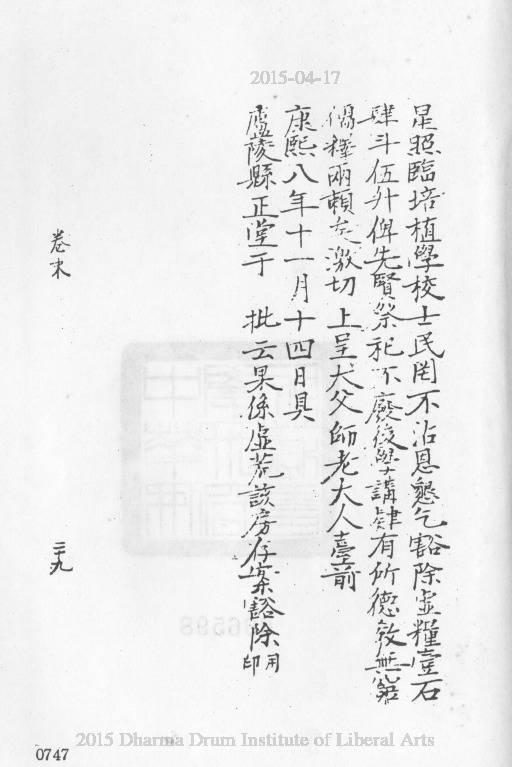 2015-04-17
星照臨培植學校士民罔不沾恩懇乞豁除虛糧壹石
肆斗伍升俾先賢祭祀不廢後學講肄有所德教無窮
儒釋兩賴矣激切上呈大父師老大人臺前
康熙八年十一月十四日具
廬陵縣正堂于 批云果係虛荒該房存案豁除用印
卷末
三九
2015 Dharma Drum Institute of Liberal Arts
0747